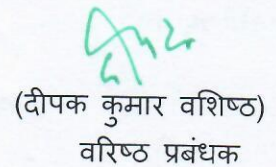 (दीपक कुमार वशिष्ठ)
वरिष्ठ प्रबंधक